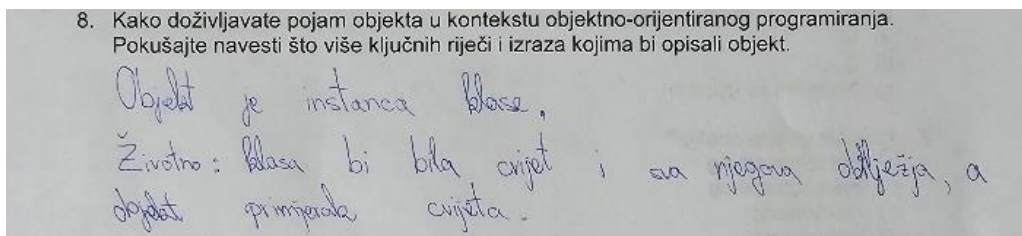 8. Kako doživljavate pojam objekta u kontekstu objektno-orijentiranog programiranja.
Pokušajte navesti što više ključnih riječi i izraza kojima bi opisali objekt.
Objekt je instanca klase.
Životno: klasa bi bila cvijet i sva njegova obilježja, a
objekt primjerak cvijeta.